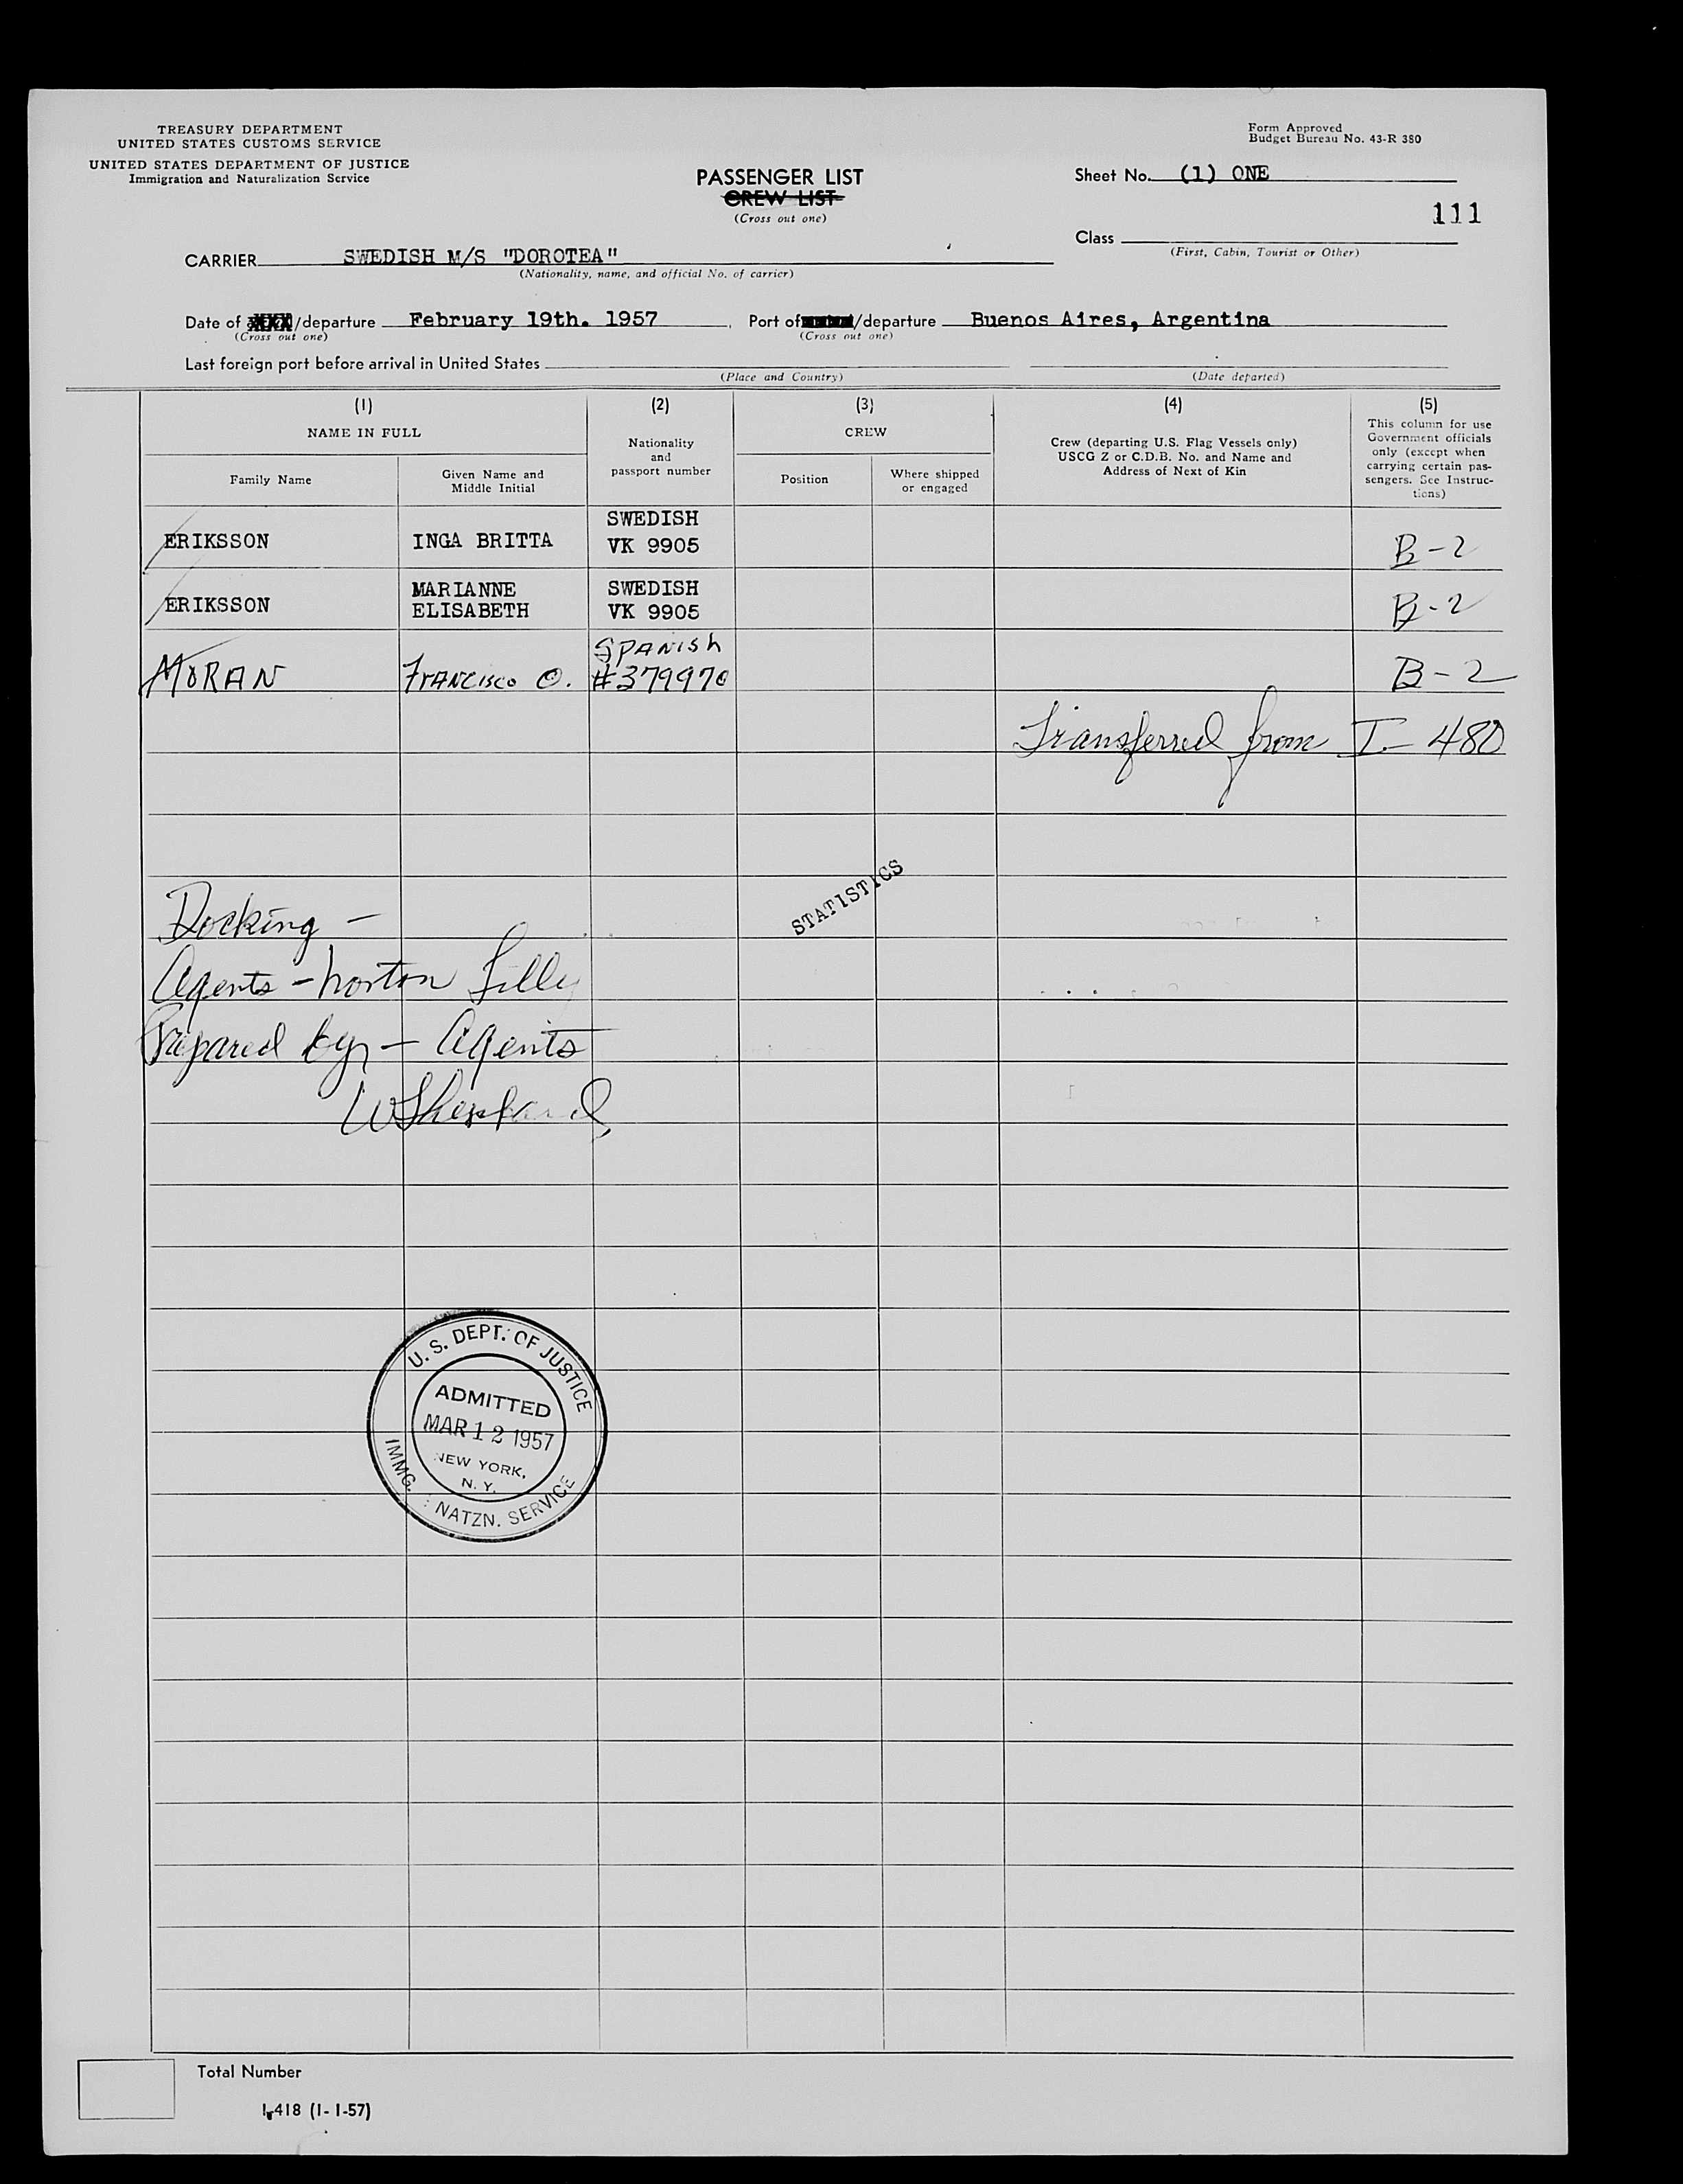 TREASURY DEPARTMENT
UNITED STATES CUSTOMS SERVICE
UNITED STATES DEPARTMENT OF JUSTICE
Immigration and Naturalization Service
Form Approved
Budget Bureau No. 43-R 380
PASSENGER LIST
CREW LIST
(Cross out one)
Sheet No. (1) ONE
111
Class
(First, Cabin, Tourist or Other)
CARRIER SWEDISH M/S "DOROTEA"
(Nationality, name, and official No. of carrier)
Date of /departure February 19th. 1957, Port of /departure Buenos Aires, Argentina
(Cross out one) (Cross out one)
Last foreign port before arrival in United States
(Place and Country) (Date departed)
(1) (2) (3) (4) (5)
NAME IN FULL
Family Name
Given Name and
Middle Initial
Nationality
and
passport number
CREW
Position
Where shipped
or engaged
Crew (departing U.S. Flag Vessels only)
USCG Z or C.D.B. No. and Name and
Address of Next of Kin
This column for use
Government officials
only (except when
carrying certain pas-
sengers. See Instruc-
tions)
ERIKSSON INGA BRITTA SWEDISH
VK 9905 B-2
ERIKSSON MARIANNE
ELISABETH SWEDISH
VK 9905 B-2
MORAN Francisco O. SPANISH
#379970 B-2
Transferred from I-480
STATISTICS
Docking -
Agents - Norton Lilly
Prepared by - Agents
U. S. DEPT. OF JUSTICE
ADMITTED
MAR 12 1957
NEW YORK,
N. Y.
IMMG. NATZN. SERVICE
Total Number
I-418 (1-1-57)